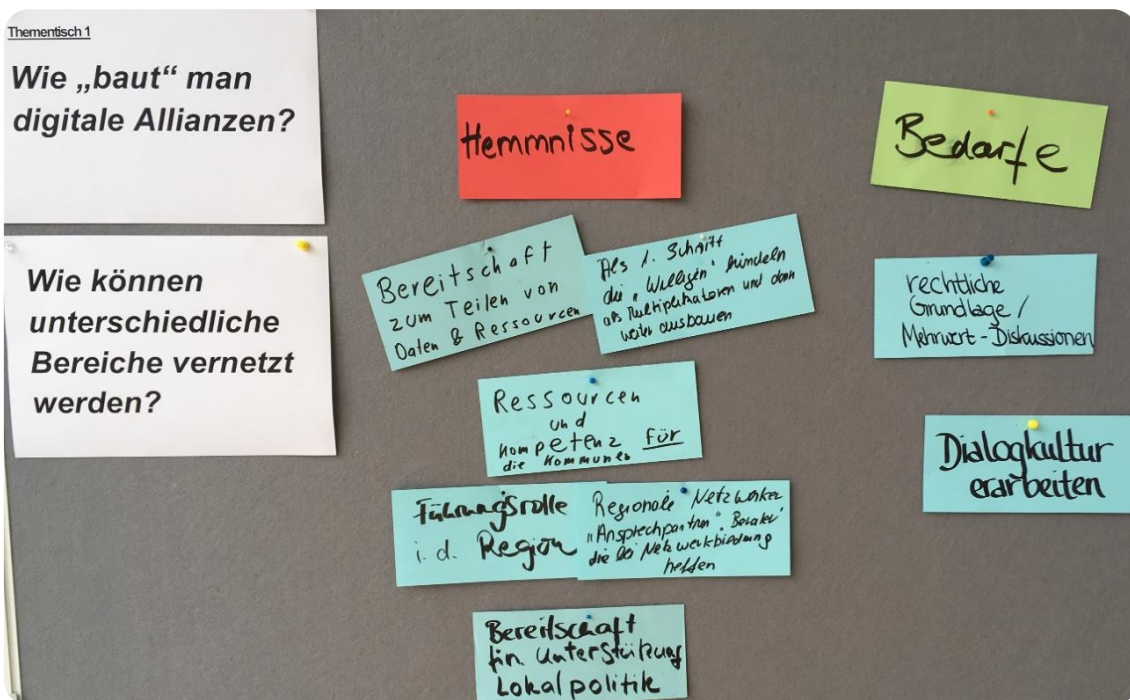 Thementisch 1
Wie „baut“ man
digitale Allianzen?
Wie können
unterschiedliche
Bereiche vernetzt
werden?
Hemmnisse
Bereitschaft
zum Teilen von
Daten & Ressourcen
Als 1. Schritt
die „Willigen“ bündeln
als Multiplikatoren und dann
weiter ausbauen
Ressourcen
und
Kompetenz für
die Kommunen
Führungsrolle
i. d. Region
Regionale Netzwerker
"Ansprechpartner" "Berater"
die bei Netzwerkbildung
helfen
Bereitschaft
für Unterstützung
Lokalpolitik
Bedarfe
rechtliche
Grundlage /
Mehrwert-Diskussionen
Dialogkultur
erarbeiten